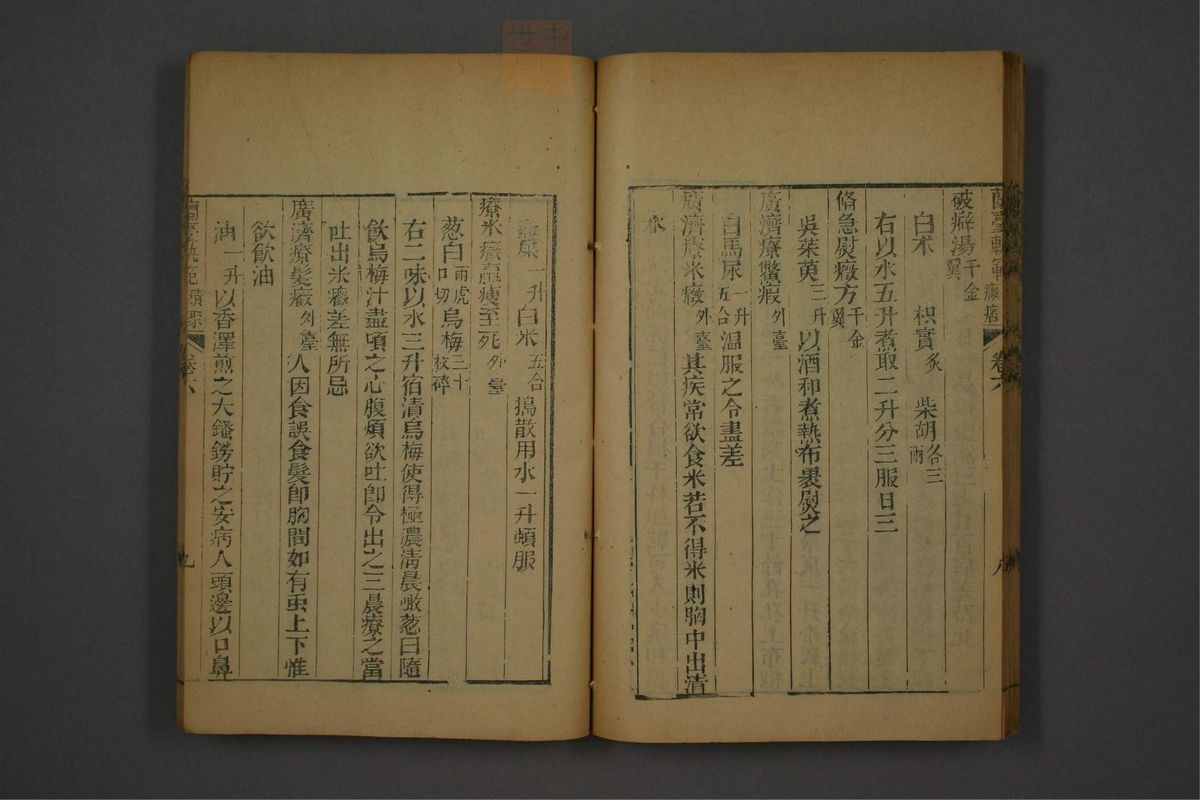 蘭臺軌範 癥瘕 卷六 八
破癖湯 千金翼
白术 枳實炙 柴胡各三兩
右以水五升煮取二升分三服日三
備急熨癥方 千金翼
吳茱萸三升以酒和煮熱布裹熨之
廣濟療鱉瘕 外臺
白馬尿一升五合溫服之令盡差
廣濟療米癥 外臺 其疾常欲食米若不得米則胸中出清
水
一升白米五合搗散用水一升頓服
療米癥羸瘦至死 外臺
葱白兩虎口切烏梅三十枚碎
右二味以水三升宿漬烏梅使得極濃清晨噉葱白隨
飲烏梅汁盡頃之心腹煩欲吐即令出之三晨療之當
吐出米癥差無所忌
廣濟療髮癥 外臺 人因食誤食髮即胸間如有虫上下惟
欲飲油
油一升以香澤煎之大鐺鐒貯之安病人頭邊以口鼻
蘭臺軌範 卷六 九